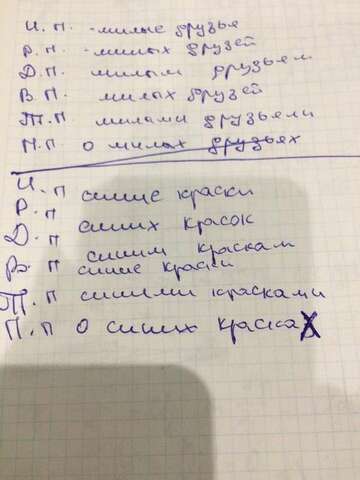 И. П. милые друзья
Р. П. милых друзей
Д. П. милым друзьям
В. П. милых друзей
Т. П. милами друзьями
П. П. о милых друзьях
И. п синие краски
Р. п синих красок
Д. п синим краскам
В. п синие краски
Т. п синими красками
П. п о синих красках